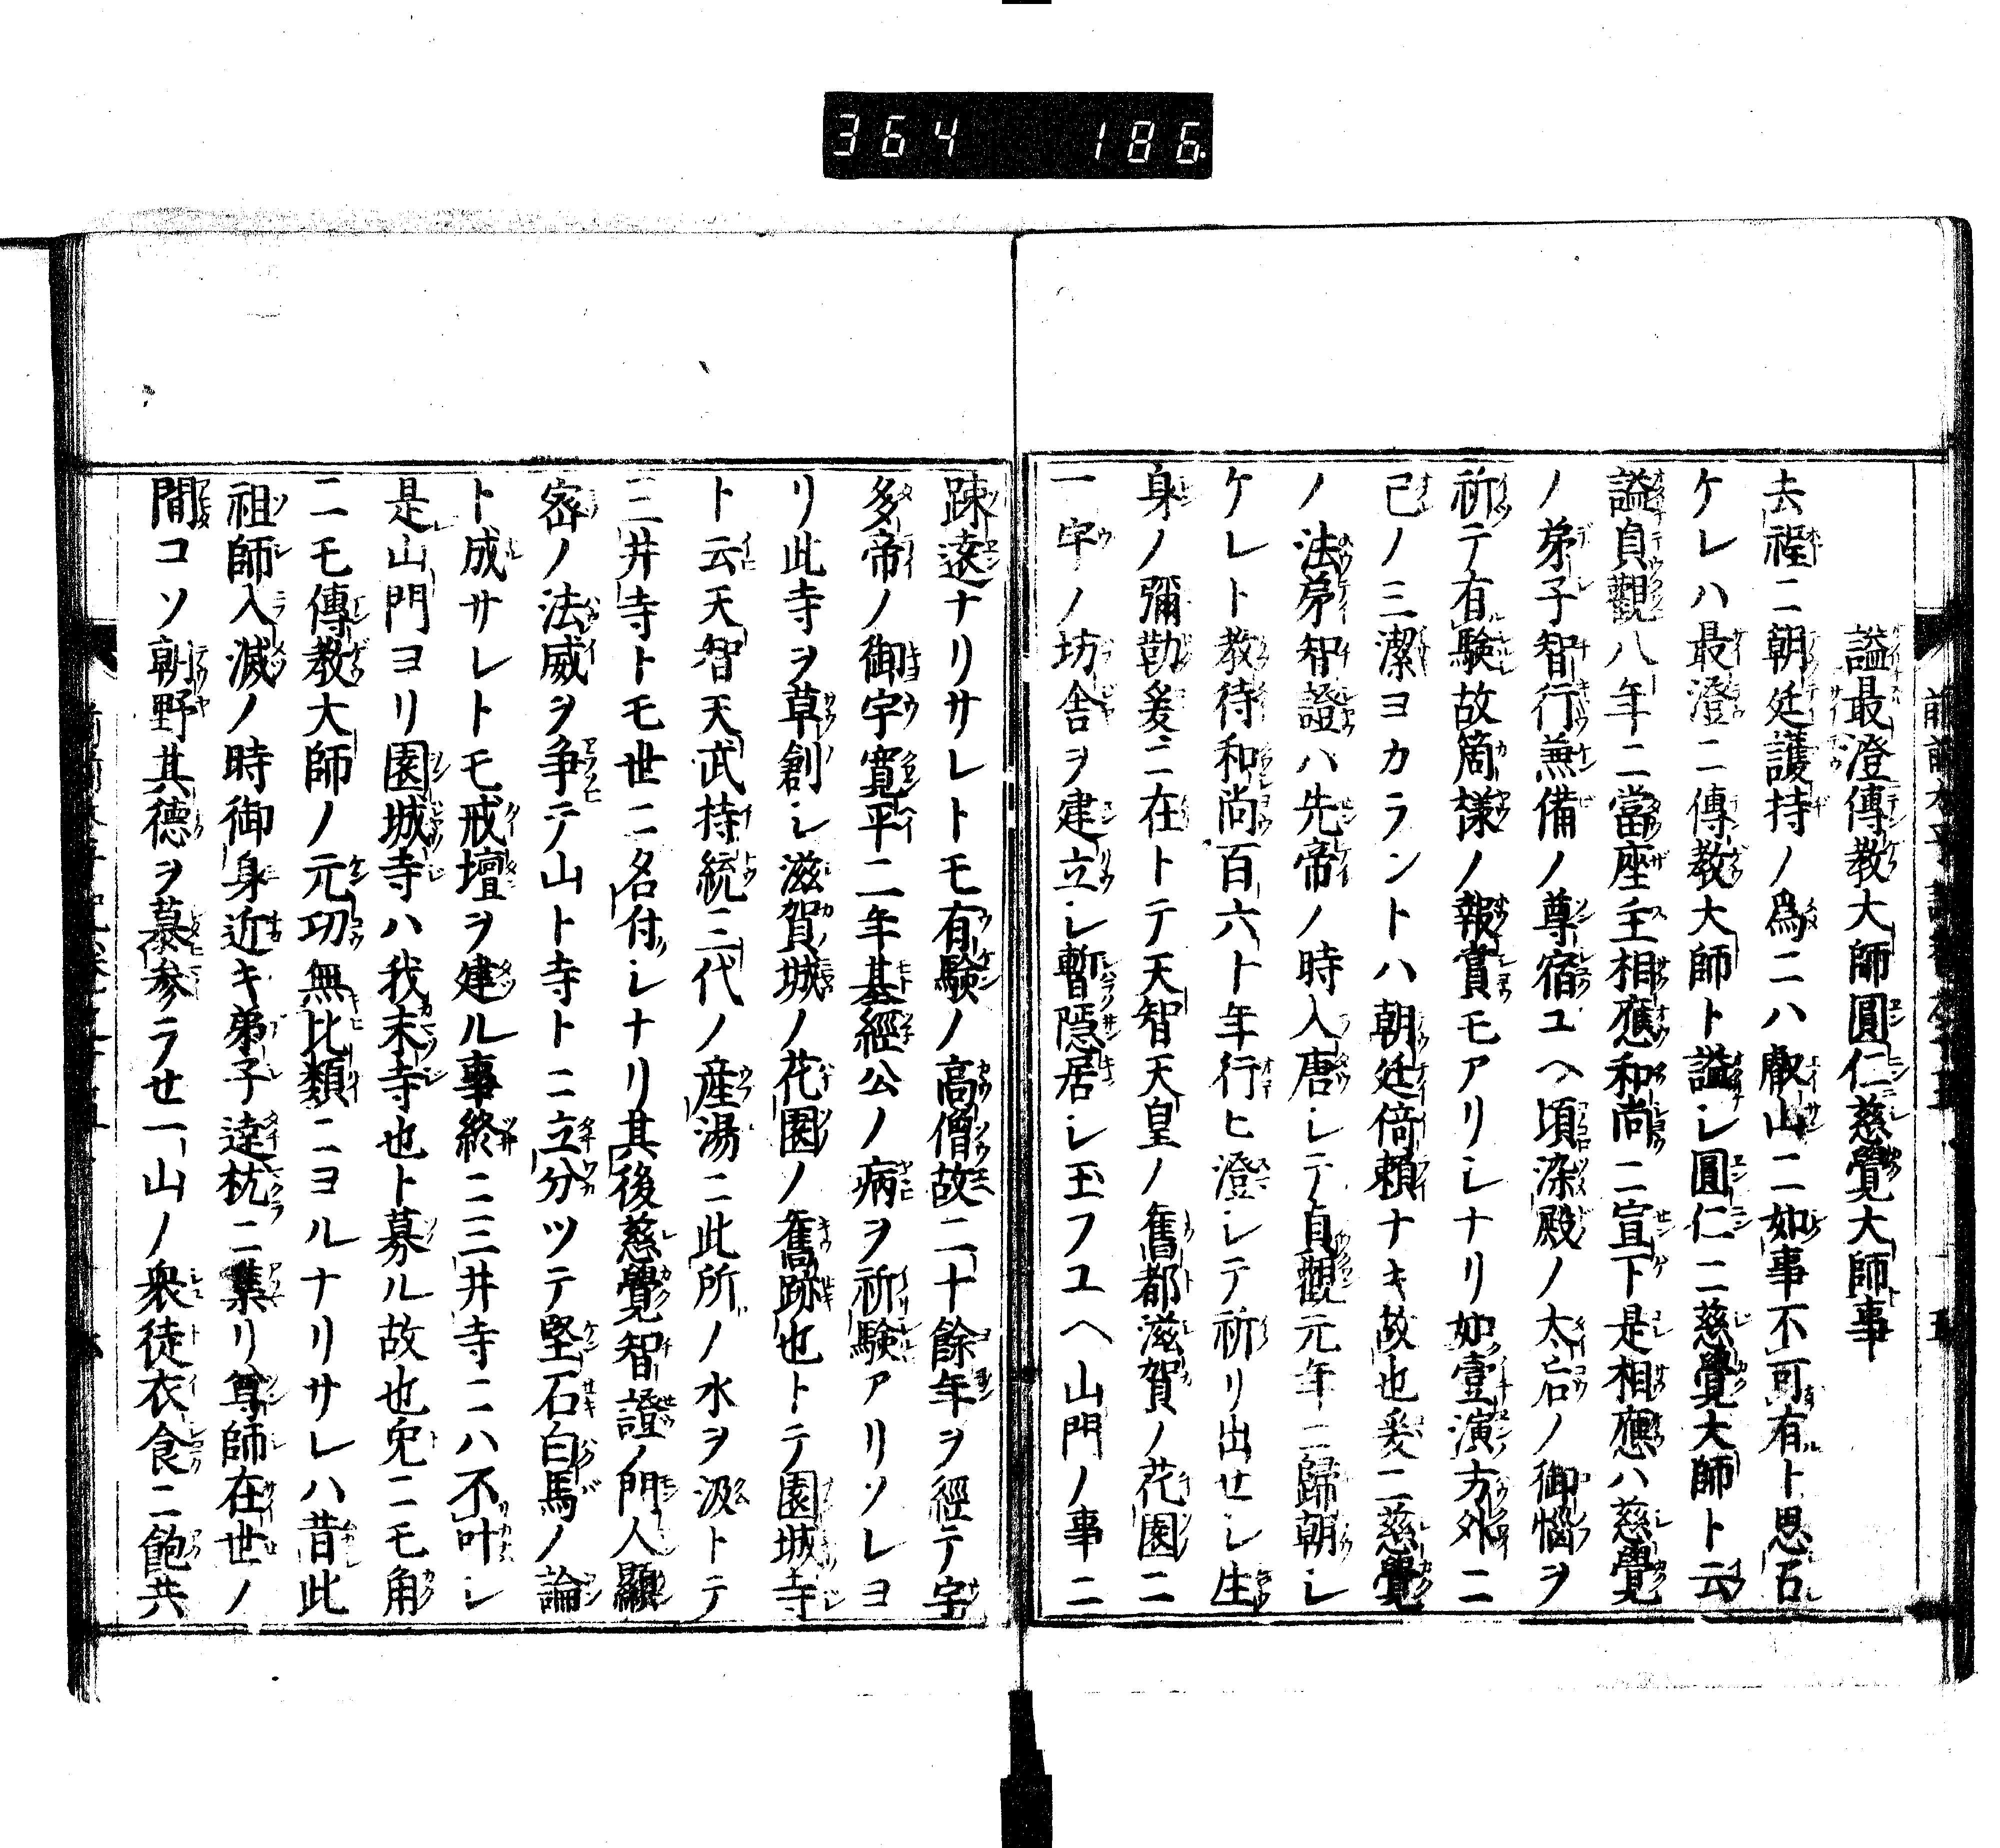 364 186
謚最澄傳教大師圓仁慈覺大師事
去程ニ朝廷護持ノ爲ニハ叡山ニ如事不可有ト思召
ケレハ最澄ニ傳教大師ト謚シ圓仁ニ慈覺大師ト云
謚貞觀八年ニ當座主相應和尚ニ宣下是相應ハ慈覺
ノ弟子智行兼備ノ尊宿ユヘ頃染殿ノ太后ノ御惱ヲ
祈テ有驗故箇樣ノ報賞モアリシナリ如壹演方外ニ
己ノ三潔ヨカラントハ朝廷倚賴ナキ故也爰ニ慈覺
ノ法弟智證ハ先帝ノ時入唐シテ貞觀元年ニ歸朝シ
ケレト教待和尚百六ト年行ヒ澄シテ祈リ出セシ生
身ノ彌勒爰ニ在トテ天智天皇ノ舊都滋賀ノ花園ニ
一宇ノ坊舎ヲ建立シ暫隱居シ玉フユヘ山門ノ事ニ
踈遠ナリサレトモ有驗ノ高僧故二十餘年ヲ經テ宇
多帝ノ御宇寛平二年基經公ノ病ヲ祈驗アリソレヨ
リ此寺ヲ草創シ滋賀城ノ花園ノ舊跡也トテ園城寺
ト云天智天武持統三代ノ産湯ニ此所ノ水ヲ汲トテ
三井寺トモ世ニ名付シナリ其後慈覺智證ノ門人顯
密ノ法威ヲ争テ山ト寺トニ立分ツテ堅石白馬ノ論
ト成サレトモ戒壇ヲ建ル事終ニ三井寺ニハ不叶シ
是山門ヨリ園城寺ハ我末寺也ト募ル故也兔ニモ角
ニモ傳教大師ノ元功無比類ニヨルナリサレハ昔此
祖師入滅ノ時御身近キ弟子達枕ニ集リ尊師在世ノ
間コソ朝野其德ヲ慕參ラセ一山ノ衆徒衣食ニ飽共